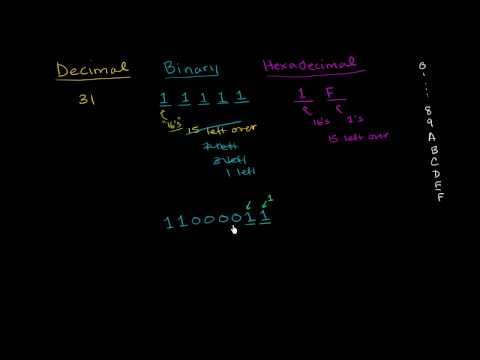 Decimal Binary Hexadecimal
31 1 1 1 1 1 1 F
16's 15 left over 16's 1's
7 left 15 left over
3 left
1 left
1 1 0 0 0 0 1 1
1
0
1
8
9
A
B
C
D
E
F